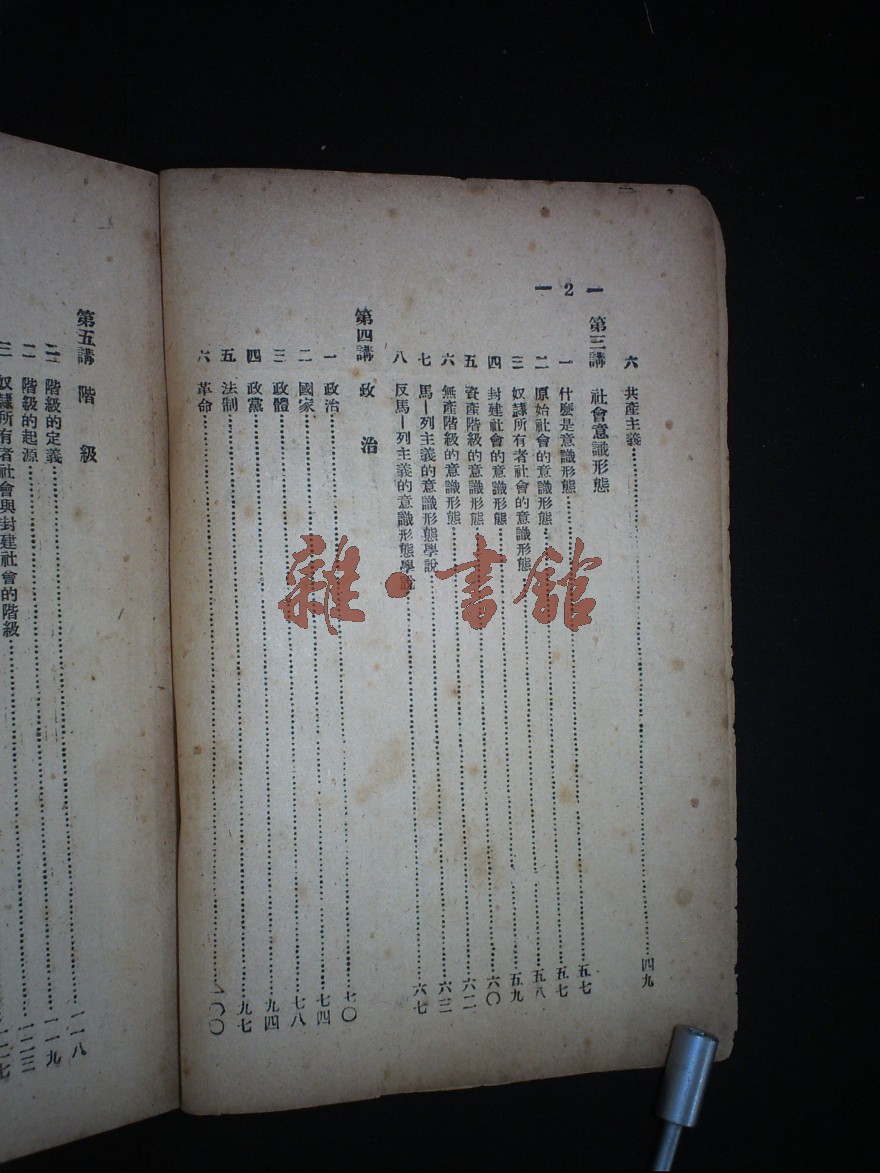 — 2 —
六 共產主義……四九
第三講 社會意識形態
一 什麼是意識形態……五七
二 原始社會的意識形態……五七
三 奴隸所有者社會的意識形態……五八
四 封建社會的意識形態……五九
五 資產階級的意識形態……六〇
六 無產階級的意識形態……六二
七 馬—列主義的意識形態學說……六三
八 反馬—列主義的意識形態學說……六七
第四講 政治
一 政治……七〇
二 國家……七四
三 政體……七八
四 政黨……九四
五 法制……九七
六 革命……一〇〇
第五講 階級
一 階級的定義……一一八
二 階級的起源……一一九
三 奴隸所有者社會與封建社會的階級……一二三
雜·書館